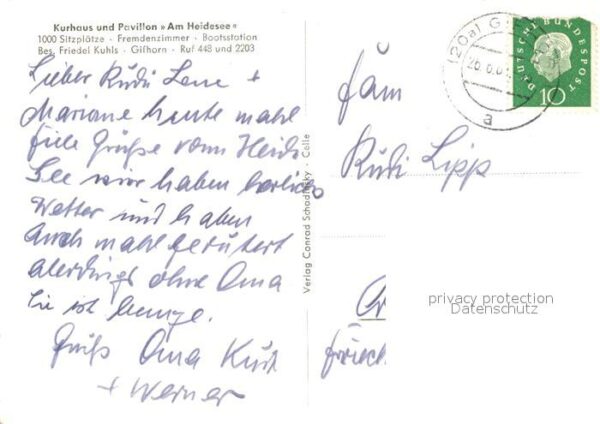 Kurhaus und Pavillon »Am Heidesee«
1000 Sitzplätze · Fremdenzimmer · Bootsstation
Bes. Friedel Kuhls · Gifhorn · Ruf 448 und 2203
Lieber Rudi Lene +
Mariane heute mahl
fiele Grüße vom Heide
See wir haben herlich
Wetter und haben
Auch mahl gerudert
alerdings ohne Oma
Sie ist bange.
Gruß Oma Kurt
+ Werner
Verlag Conrad Schadinsky · Celle
(20a) G
26.6.
a
DEUTSCHE BUNDESPOST
10
Fam
Rudi Lipp
privacy protection
Datenschutz